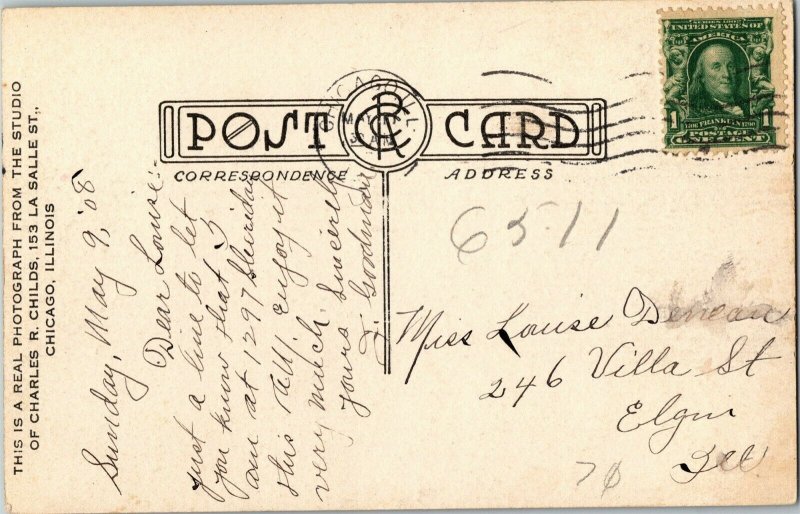 THIS IS A REAL PHOTOGRAPH FROM THE STUDIO
OF CHARLES R. CHILDS, 153 LA SALLE ST.,
CHICAGO, ILLINOIS
POST CARD
CORRESPONDENCE
ADDRESS
CHICAGO, ILL.
MAY
SERIES 1902
UNITED STATES OF
AMERICA
1 1
FRANKLIN
POSTAGE
ONE CENT
Sunday, May 9, '08
Dear Louise:
just a line to let
you know that I
am at 1297 Sheridan
this all, enjoy it
very much.
Yours Sincerely
J. Goodman
6511
Miss Louise Duncan
246 Villa St
Elgin
Ill